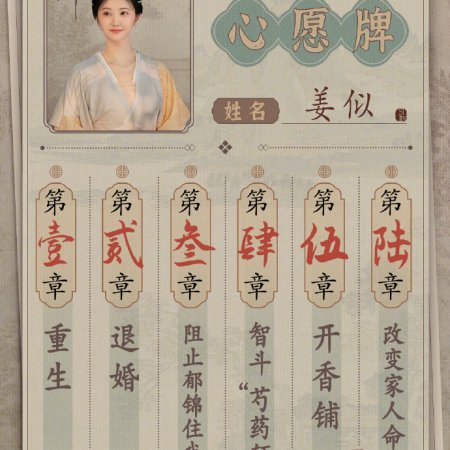 心愿牌
姓名 姜似
第壹章
重生
第贰章
退婚
第叁章
阻止郁锦住
第肆章
智斗“芍药
第伍章
开香铺
第陆章
改变家人命